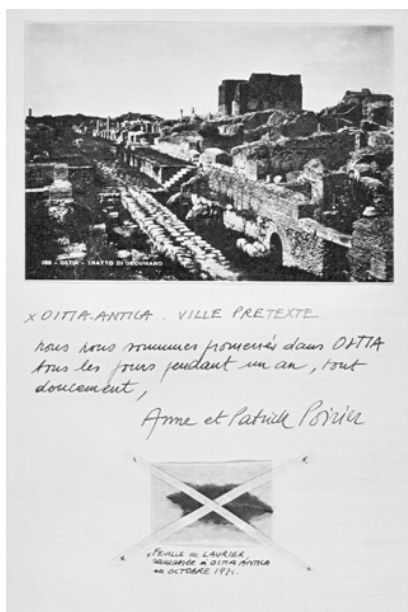 298 - OSTIA - TRATTO DI DECUMANO
x OSTIA-ANTICA. VILLE PRETEXTE.
nous nous sommes promenés dans OSTIA
tous les jours pendant un an, tout
doucement,
Anne et Patrick Poirier
x FEUILLE de LAURIER,
ramassée à OSTIA ANTICA
en OCTOBRE 1971.